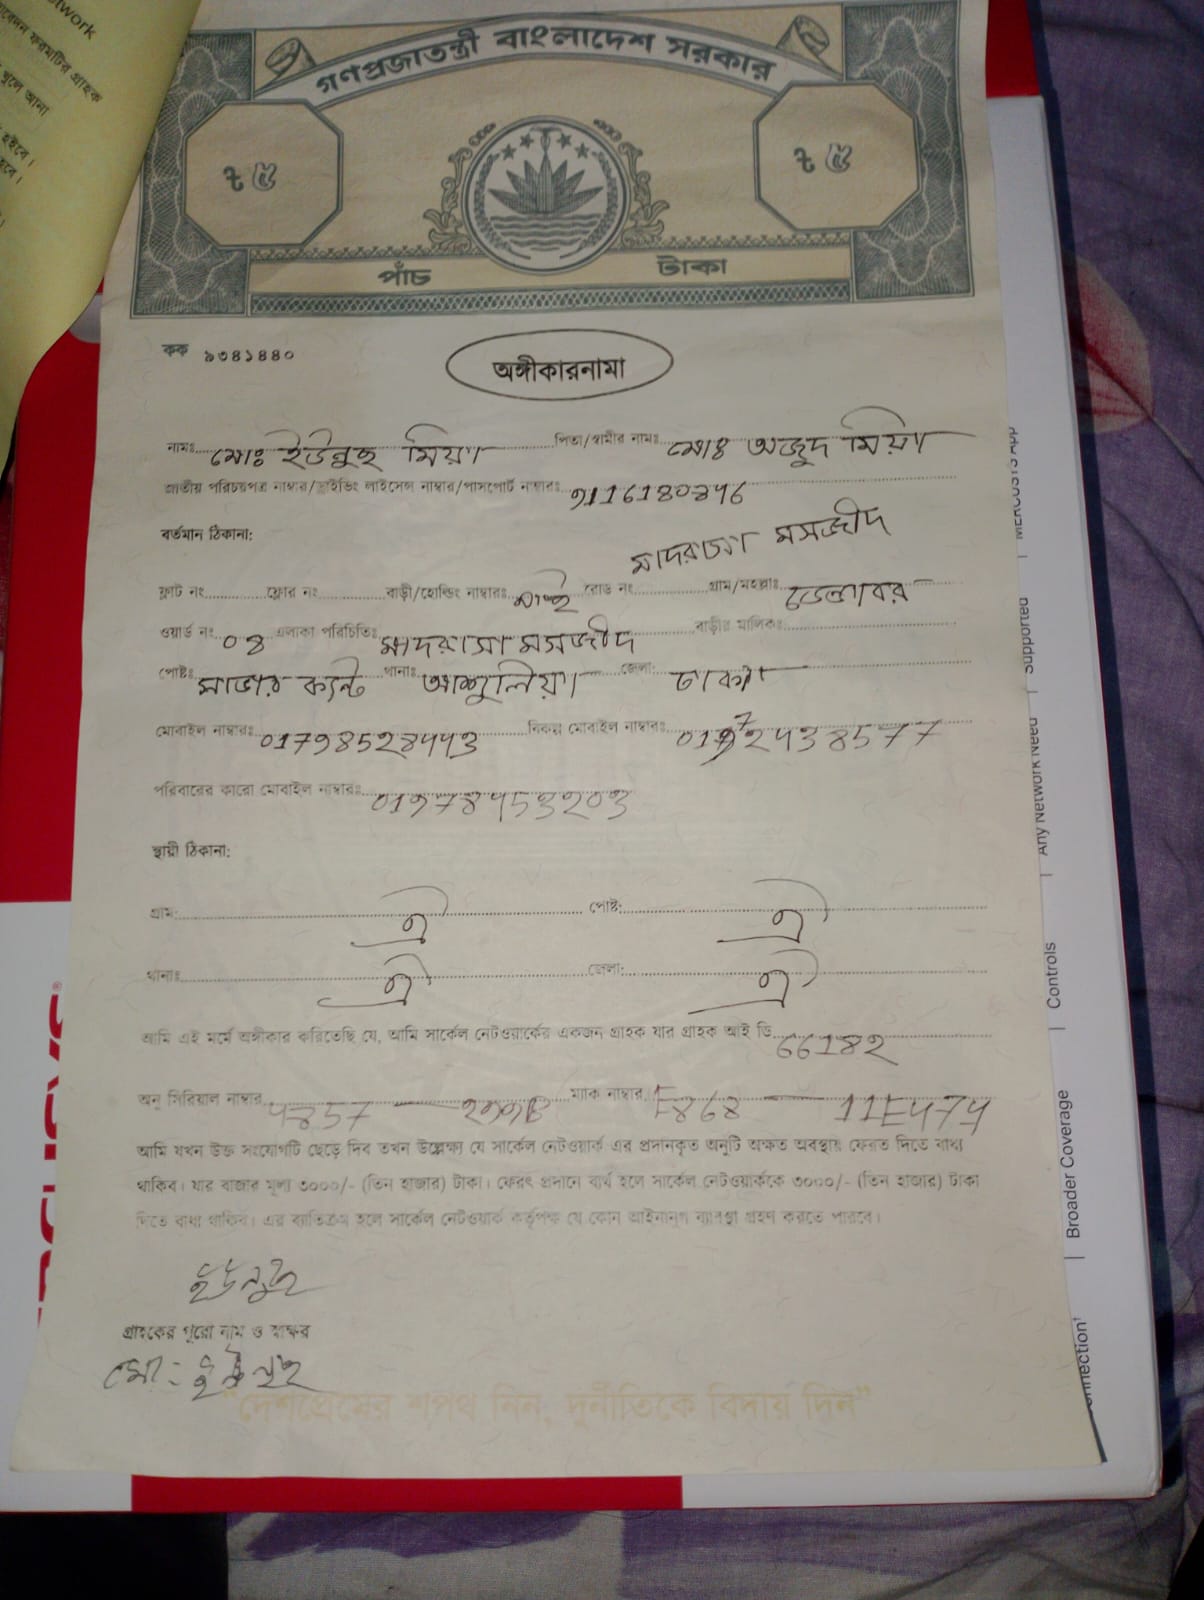 twork
আবেদন ফরমটির গ্রাহক
খুলে আনা
হইবে।
হবে।
গণপ্রজাতন্ত্রী বাংলাদেশ সরকার
৳ ৫ ৳ ৫
পাঁচ টাকা
কক ৯৩৪১৪৪০
অঙ্গীকারনামা
নামঃ মোঃ ইউনুছ মিয়া পিতা/স্বামীর নামঃ মোঃ অজুদ মিয়া
জাতীয় পরিচয়পত্র নাম্বার/ড্রাইভিং লাইসেন্স নাম্বার/পাসপোর্ট নাম্বারঃ
বর্তমান ঠিকানা: মাদরাসা মসজীদ
ফ্লাট নং ফ্লোর নং বাড়ী/হোল্ডিং নাম্বারঃ নাই রোড নং গ্রাম/মহল্লাঃ ডেন্ডাবর
ওয়ার্ড নং ০৪ এলাকা পরিচিতিঃ মাদরাসা মসজীদ বাড়ীর মালিকঃ
পোষ্টঃ সাভার ক্যন্ট থানাঃ আশুলিয়া জেলা: ঢাকা
মোবাইল নাম্বারঃ বিকল্প মোবাইল নাম্বারঃ
পরিবারের কারো মোবাইল নাম্বারঃ
স্থায়ী ঠিকানা:
গ্রাম: ঐ পোষ্ট: ঐ
থানাঃ ঐ জেলা: ঐ
আমি এই মর্মে অঙ্গীকার করিতেছি যে, আমি সার্কেল নেটওয়ার্কের একজন গ্রাহক যার গ্রাহক আই ডি 66182
অনু সিরিয়াল নাম্বার ম্যাক নাম্বার
আমি যখন উক্ত সংযোগটি ছেড়ে দিব তখন উল্লেক্ষা যে সার্কেল নেটওয়ার্ক এর প্রদানকৃত অনুটি অক্ষত অবস্থায় ফেরত দিতে বাধ্য
থাকিব। যার বাজার মূল্য ৩০০০/- (তিন হাজার) টাকা। ফেরৎ প্রদানে ব্যর্থ হলে সার্কেল নেটওয়ার্ককে ৩০০০/- (তিন হাজার) টাকা
দিতে বাধ্য থাকিব। এর ব্যতিক্রম হলে সার্কেল নেটওয়ার্ক কর্তৃপক্ষ যে কোন আইনানুগ ব্যবস্থা গ্রহণ করতে পারবে।
ইউনুছ
গ্রাহকের পুরো নাম ও স্বাক্ষর
মো: ইউনুছ
"দেশপ্রেমের শপথ নিন, দুর্নীতিকে বিদায় দিন"
MERCUSYS APP
Any Network Need | Supported
Broader Coverage | Controls